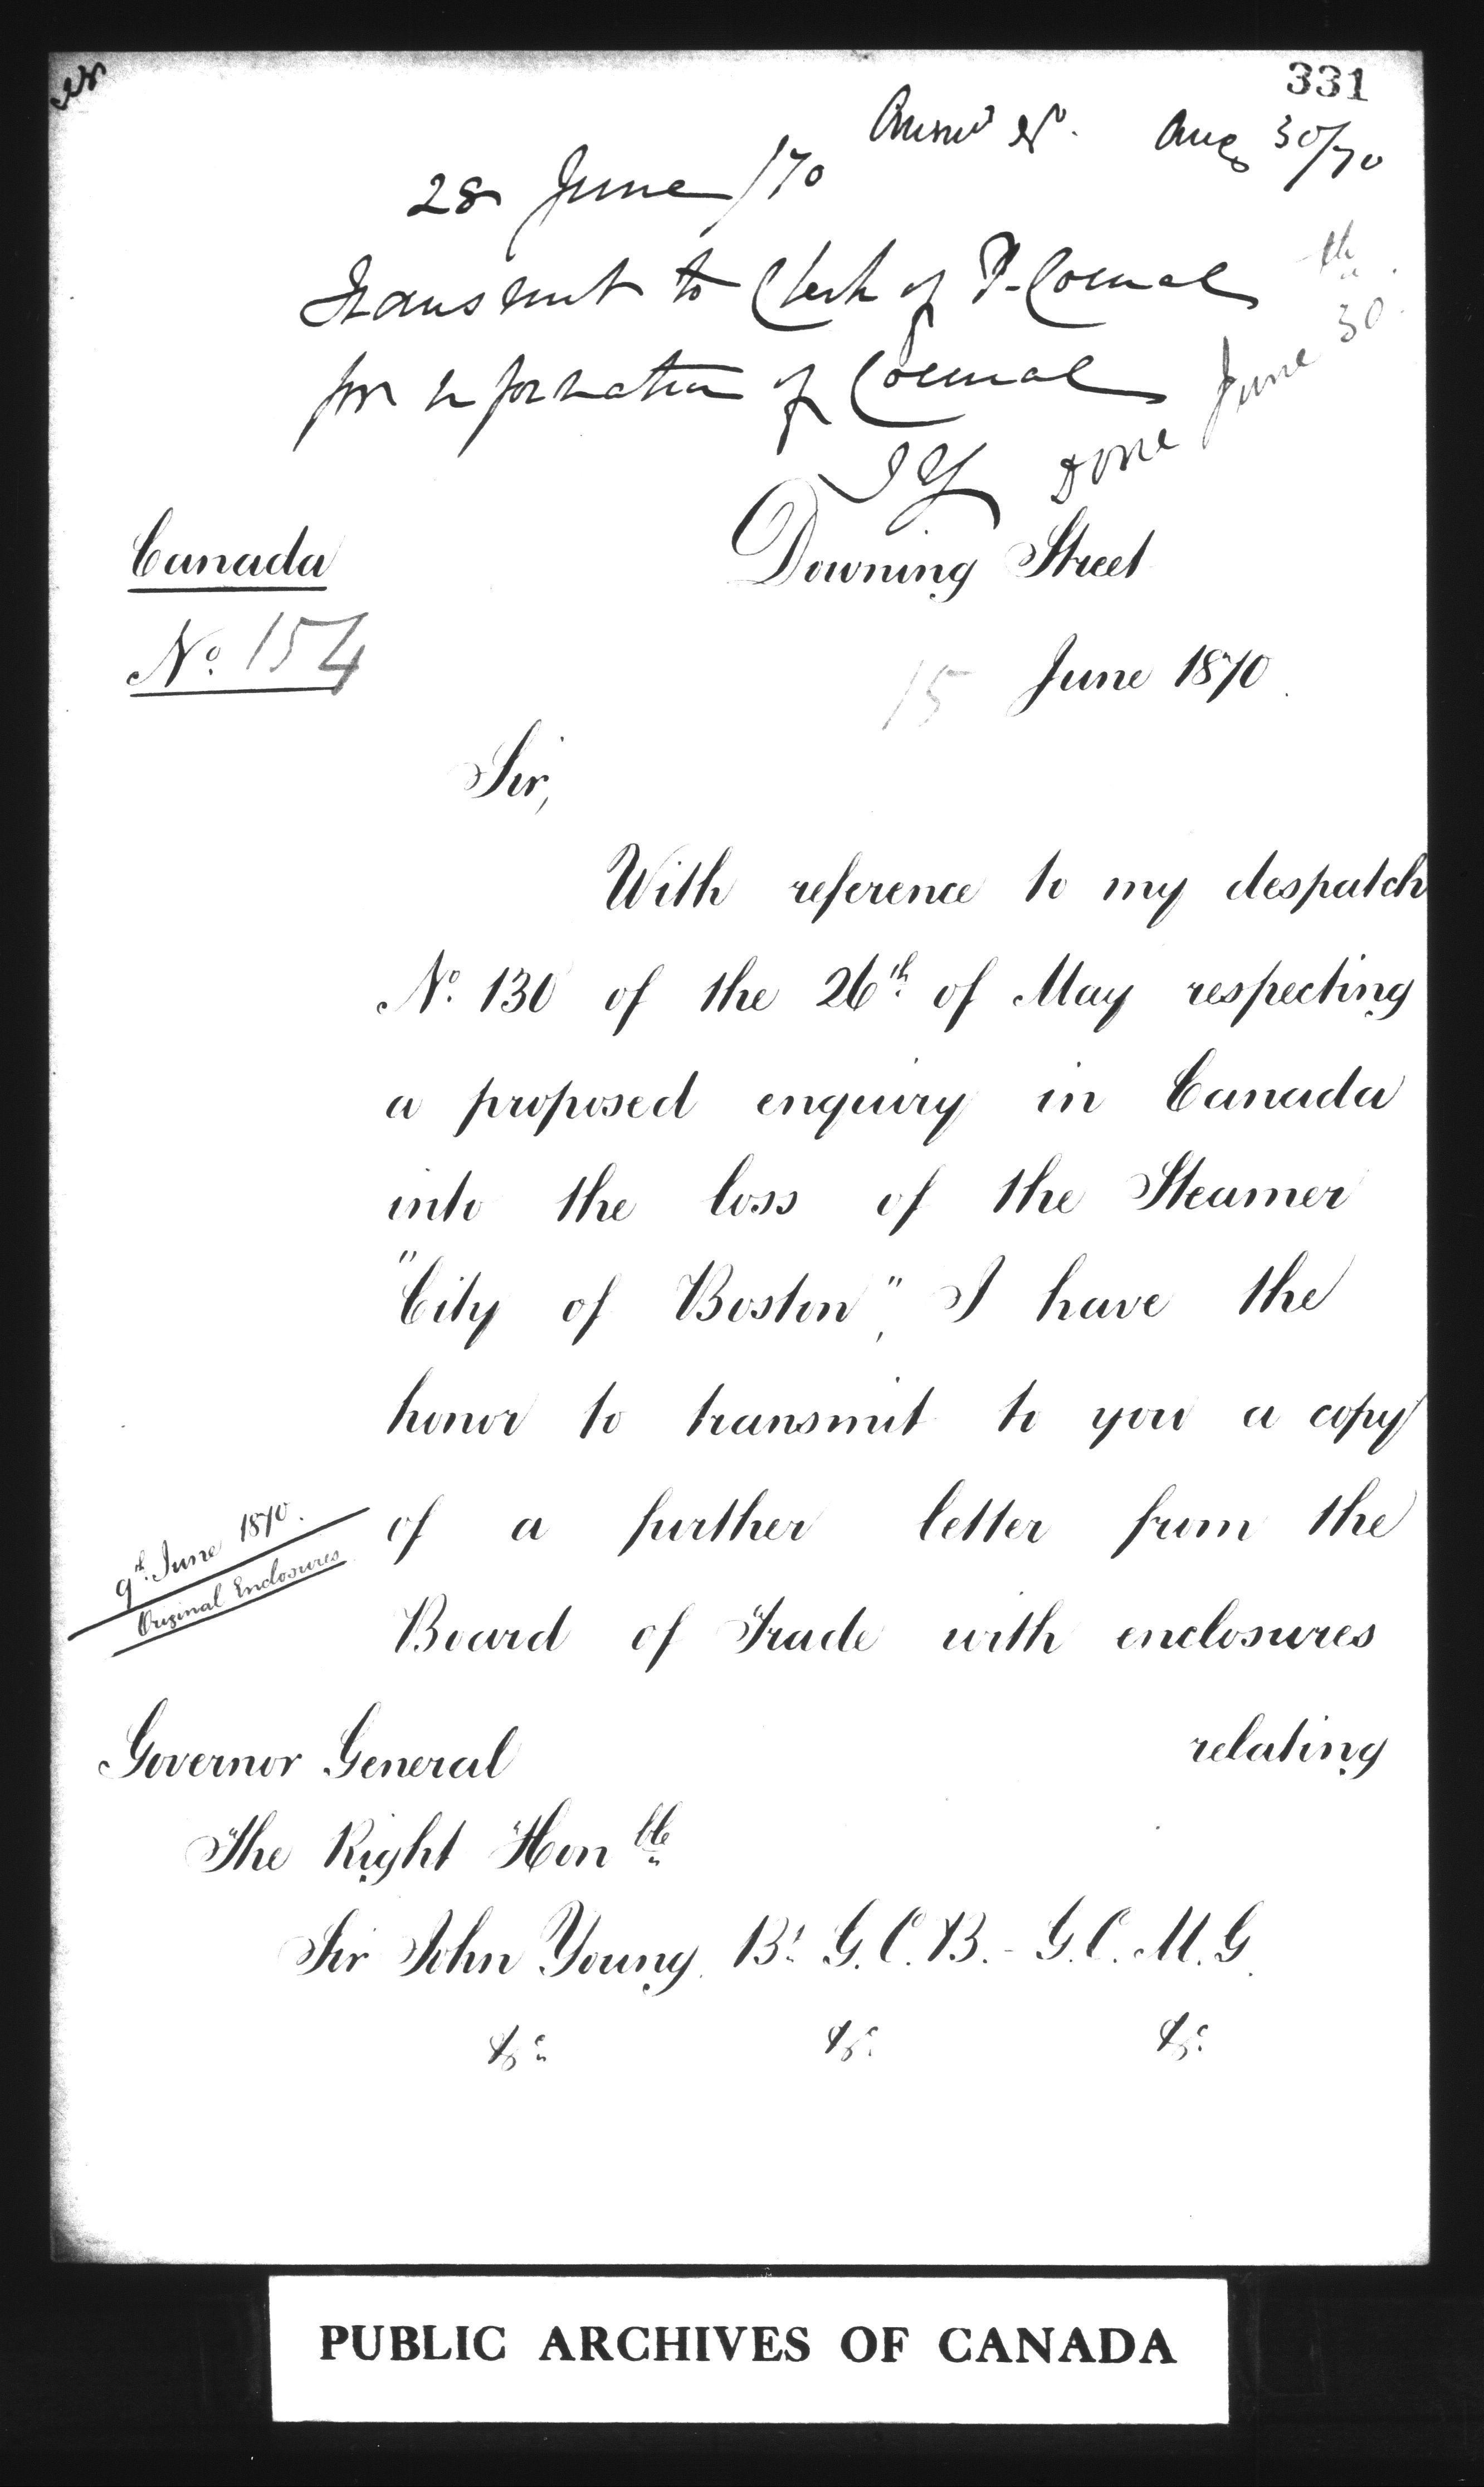 331
Answd No. Aug 30/70
28 June /70
Transmit to Clerk of P. Council
for information of Council
JY
Done June 30th
Canada
No. 154
Downing Street
15 June 1870.
Sir,
With reference to my despatch
No. 130 of the 26th of May respecting
a proposed enquiry in Canada
into the loss of the Steamer
"City of Boston", I have the
honor to transmit to you a copy
9th June 1870.
Original Enclosures
of a further letter from the
Board of Trade with enclosures
relating
Governor General
The Right Honble
Sir John Young. Bt. G.C.B. - G.C.M.G.
&c. &c. &c.
PUBLIC ARCHIVES OF CANADA